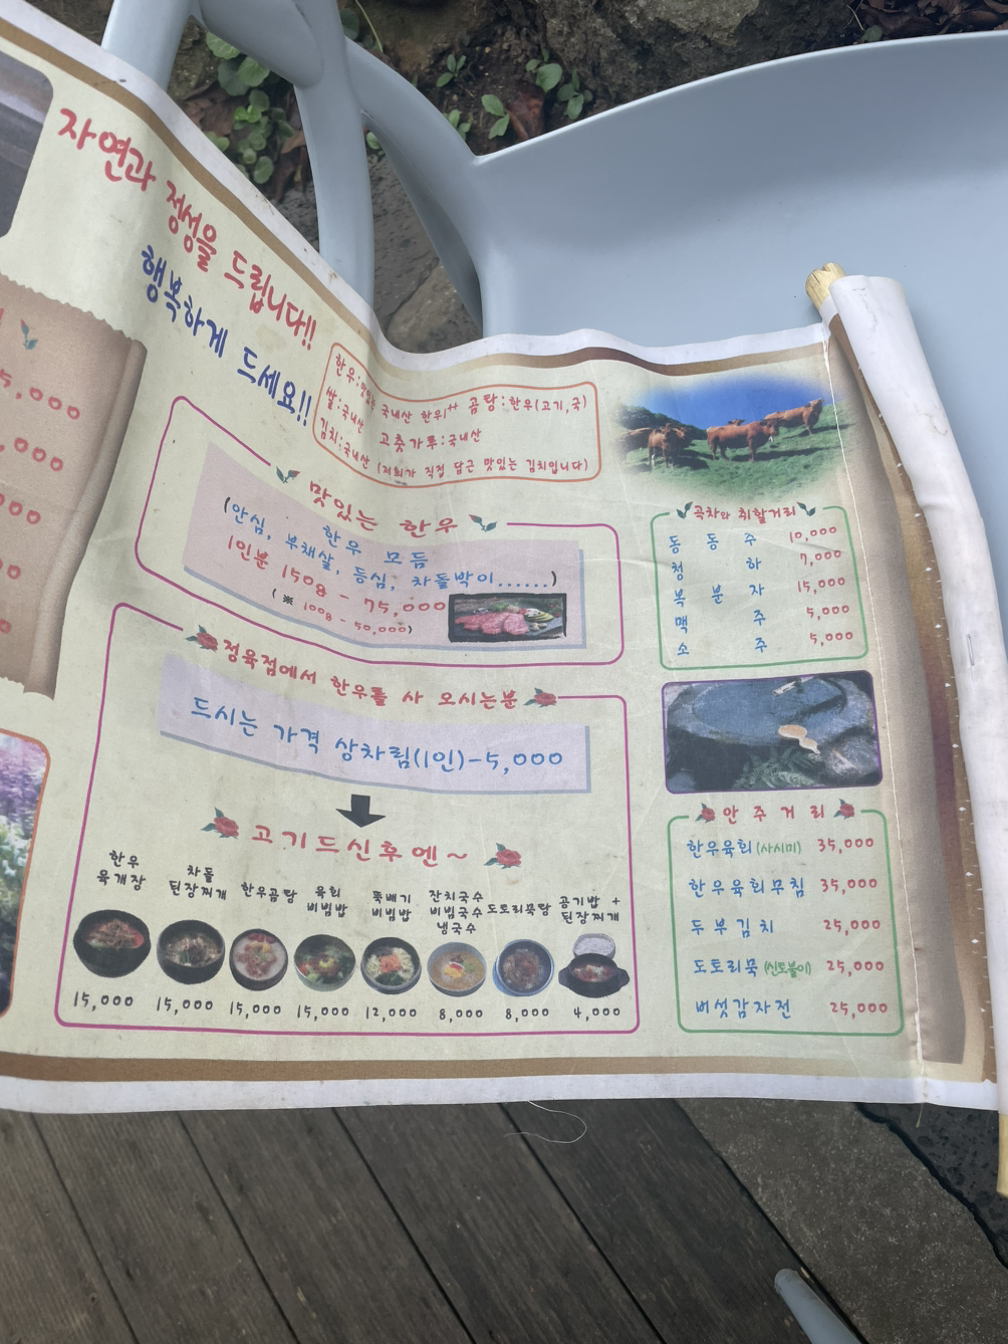 자연과 정성을 드립니다!!
행복하게 드세요!!
5,000
,000
000
00
0
한우:맛있는 국내산 한우++ 곰탕:한우(고기,국)
쌀:국내산 고춧가루:국내산
김치:국내산 (저희가 직접 담근 맛있는 김치입니다)
맛있는 한우
한우 모듬
(안심, 부채살, 등심, 차돌박이......)
1인분 150g - 75,000
(※ 100g - 50,000)
정육점에서 한우를 사 오시는분
드시는 가격 상차림(1인)-5,000
고기드신후엔~
한우 육개장 15,000
차돌 된장찌개 15,000
한우곰탕 15,000
육회 비빔밥 15,000
뚝배기 비빔밥 12,000
잔치국수 비빔국수 냉국수 8,000
도토리묵탕 8,000
공기밥 + 된장찌개 4,000
곡차와 취할거리
동동주 10,000
청하 7,000
복분자 15,000
맥주 5,000
소주 5,000
안주거리
한우육회(사시미) 35,000
한우육회무침 35,000
두부김치 25,000
도토리묵(신토불이) 25,000
버섯감자전 25,000